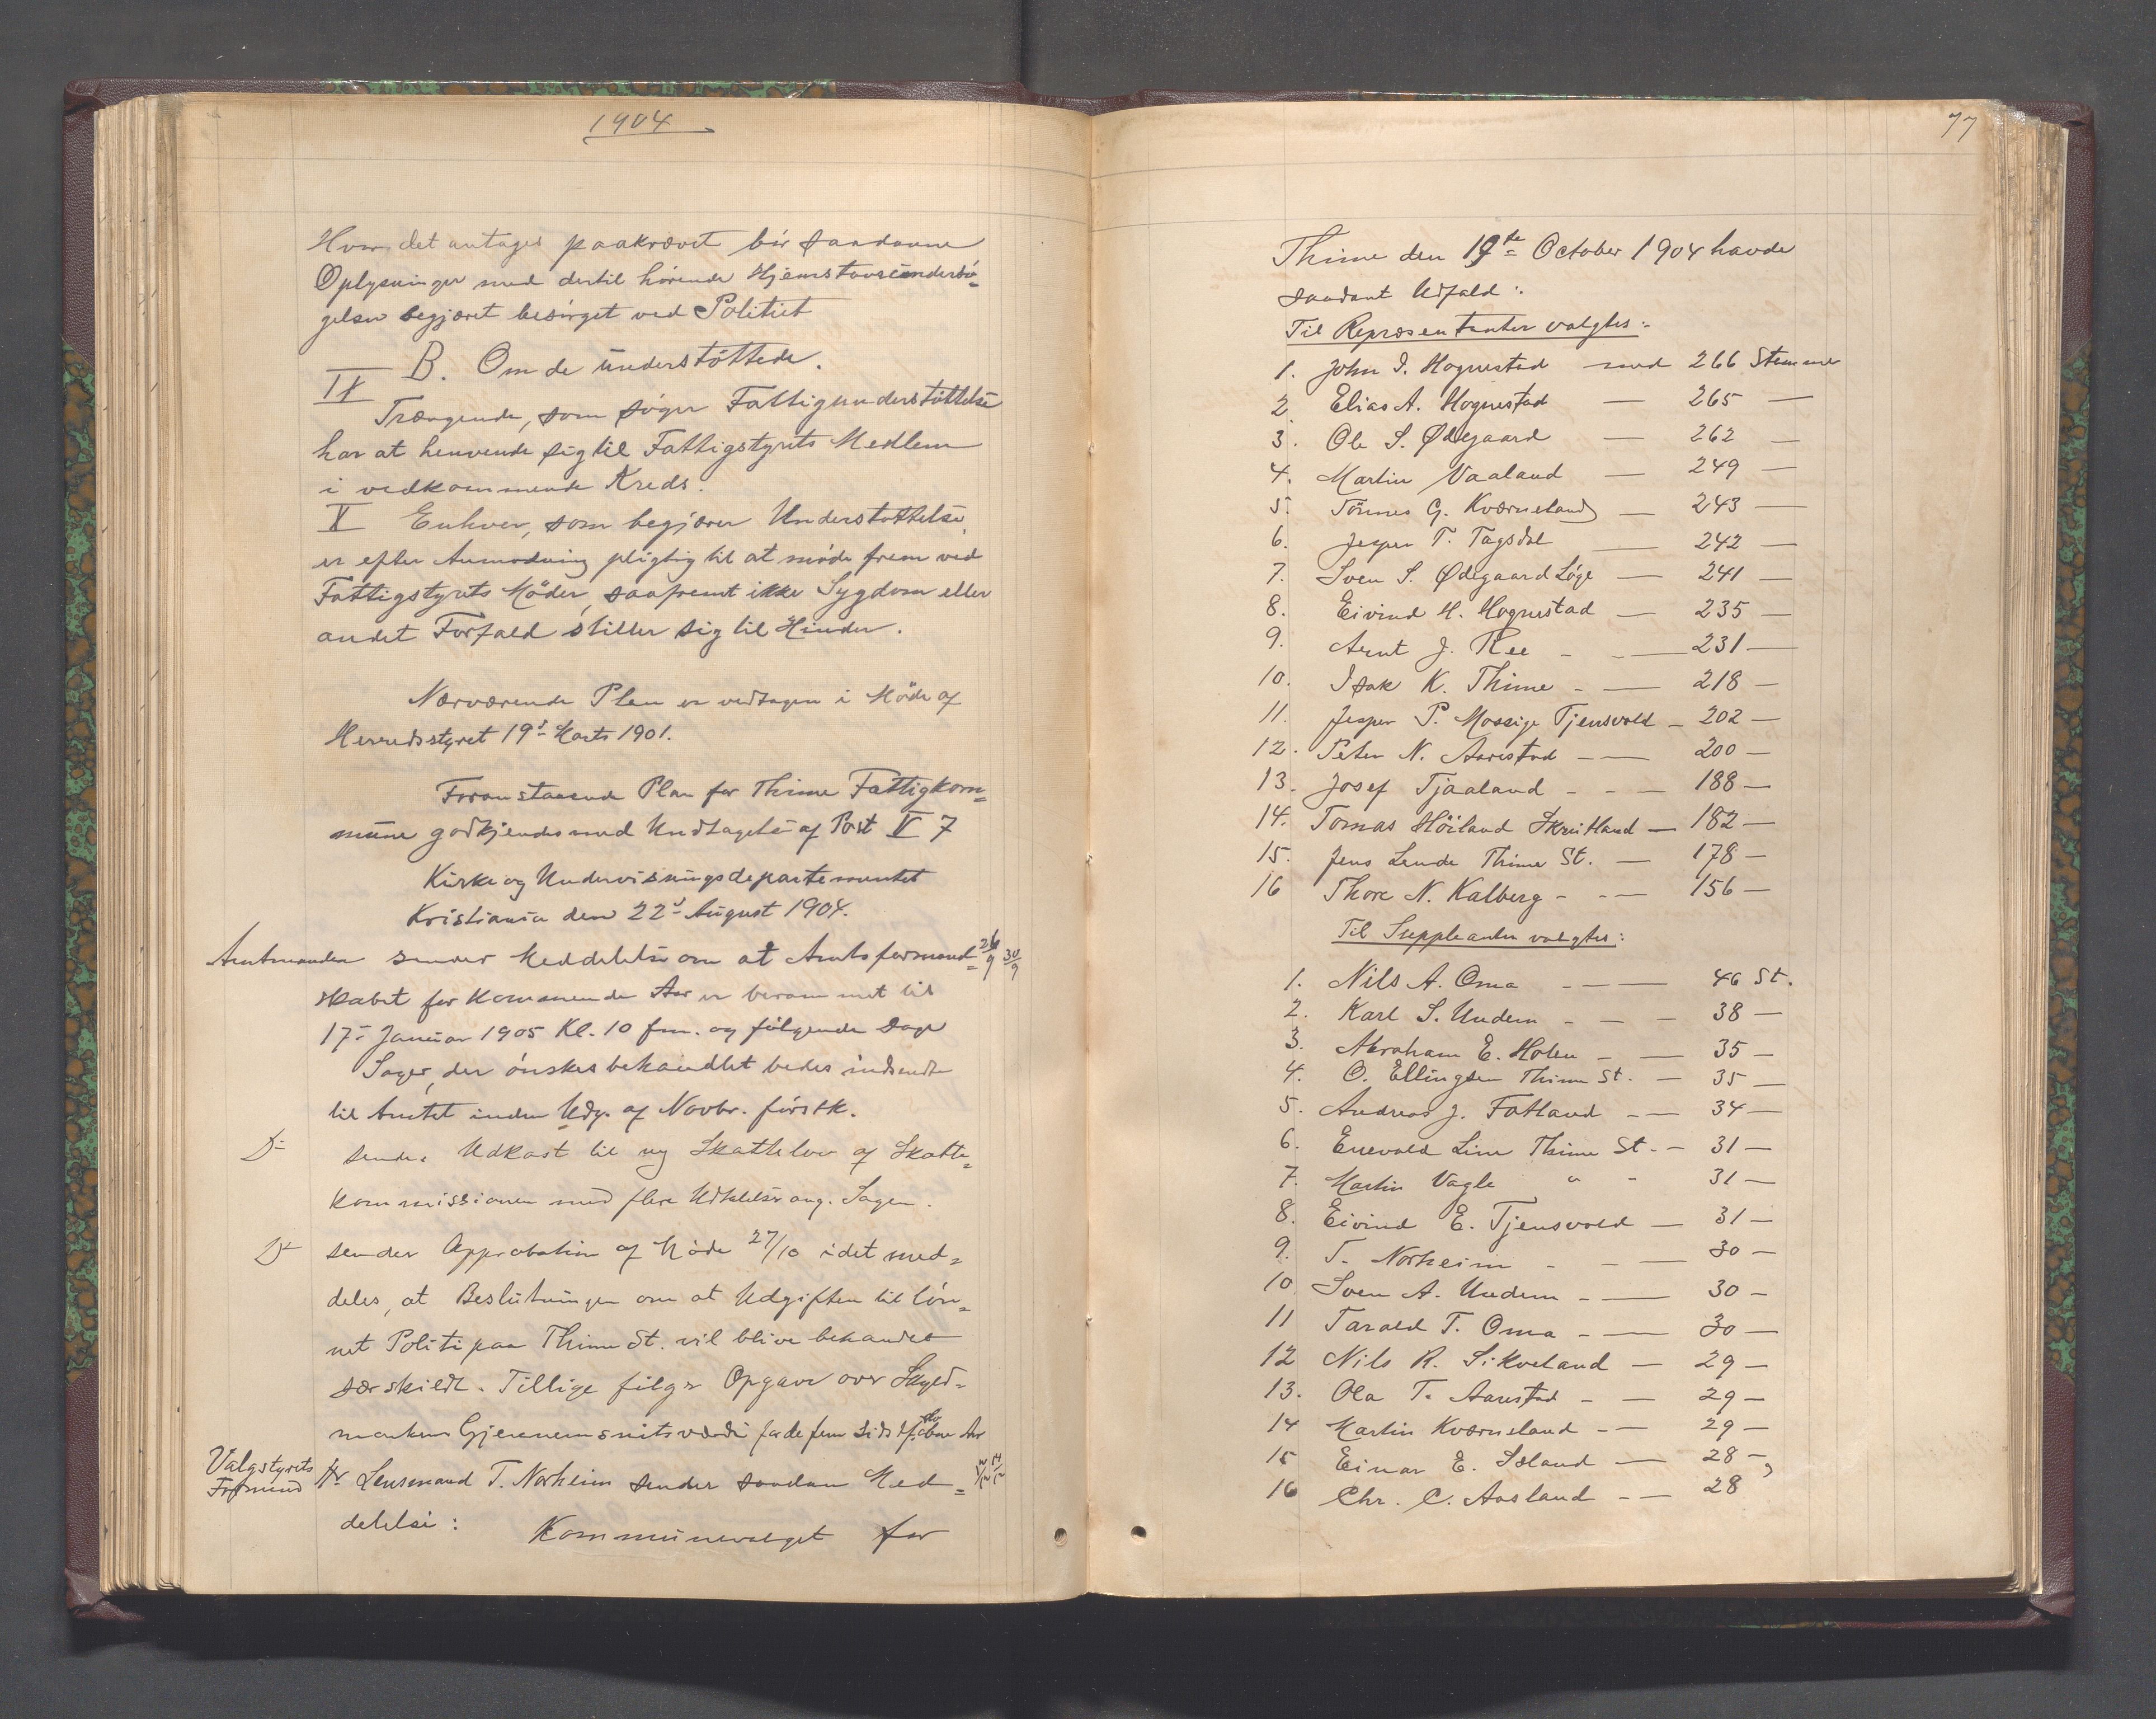 1904
Hvor det antages paakrævet bør saadanne
Oplysninger med dertil hørende Hjemstavnsundersø-
gelser begjæret besørget ved Politiet
B. Om de understøttede.
IX
Trængende, som søger Fattigunderstøttelse
har at henvende sig til Fattigstyrets Medlem
i vedkommende Kreds.
X Enhver, som begjærer Understøttelse,
er efter Anmodning pligtig til at møde frem ved
Fattigstyrets Møder, saafremt ikke Sygdom eller
andet Forfald stiller sig til Hinder.
Nærværende Plan er vedtagen i Møde af
Herredsstyret 19d Marts 1901.
Foranstaaende Plan for Thime Fattigkom=
mune godkjendes med Undtagelse af Post V 7
Kirke og Undervisningsdepartementet
Kristiania den 22d August 1904.
Amtmanden sender Meddelelse om at Amtsformand= 26/9 30/9
skabet for kommende Aar er berammet til
17- Januar 1905 Kl. 10 fm. og følgende Dage
Sager, der ønskes behandlet bedes indsendte
til Amtet inden Udg. af Novbr. førstk.
D- sender Udkast til ny Skattelov af Skatte=
kommissionen med flere Udtalelser ang. Sagen.
D- sender Approbation af Møde 27/10 idet med=
deles, at Beslutningen om at Udgiften til løn=
net Politi paa Thime St. vil blive behandlet
særskildt. Tillige følger Opgave over
Gjennemsnitsværdi for de fem sidst Aar
Valgstyrets
Formand Hr Lensmand T. Norheim sender saadan Med=
delelse:
Kommunevalget for
77
Thime den 19de October 1904 havde
saadant Udfald:
Til Repræsentanter valgtes:
1. John I. Hognestad med 266 Stemmer
2 Elias A. Hognestad — 265 —
3. Ole S. Ødegaard — 262 —
4. Martin Vaaland — 249 —
5. Tönnes G. Kværneland — 243 —
6. Jesper T. Tagsdal — 242 —
7. Sven S. Ødegaard Löge — 241 —
8. Eivind H. Hognestad — 235 —
9. Arnt J. Ree - - — 231 —
10. Isak K. Thime - — 218 —
11. Jesper P. Mossige Tjensvold - 202 —
12. Peter N. Aarestad - — 200 —
13. Josef Tjaaland - - — 188 —
14. Tomas Höiland Skrutland — 182 —
15. Jens Lende Thime St. — 178 —
16 Thore N. Kalberg - - — 156 —
Til Suppleanter valgtes:
1. Nils A. Oma - — — 46 St.
2. Karl S. Undem - — - 38 —
3. Abraham E. Holen - — 35 —
4. O. Ellingsen Thime St. — 35 —
5. Andreas J. Fatland - — 34 —
6. Enevald Line Thime St. - - 31 —
7. Martin Vagle " - 31 —
8. Eivind E. Tjensvold — 31 —
9. T. Norheim - - — 30 —
10 Sven A. Undem - — 30 —
11 Tarald T. Oma - — 30 —
12 Nils R. Sikveland — 29 —
13. Ola T. Aarestad - — 29 —
14 Martin Kværneland - — 29 —
15 Einar E. Island — 28 —
16 Chr. C. Aasland - — 28